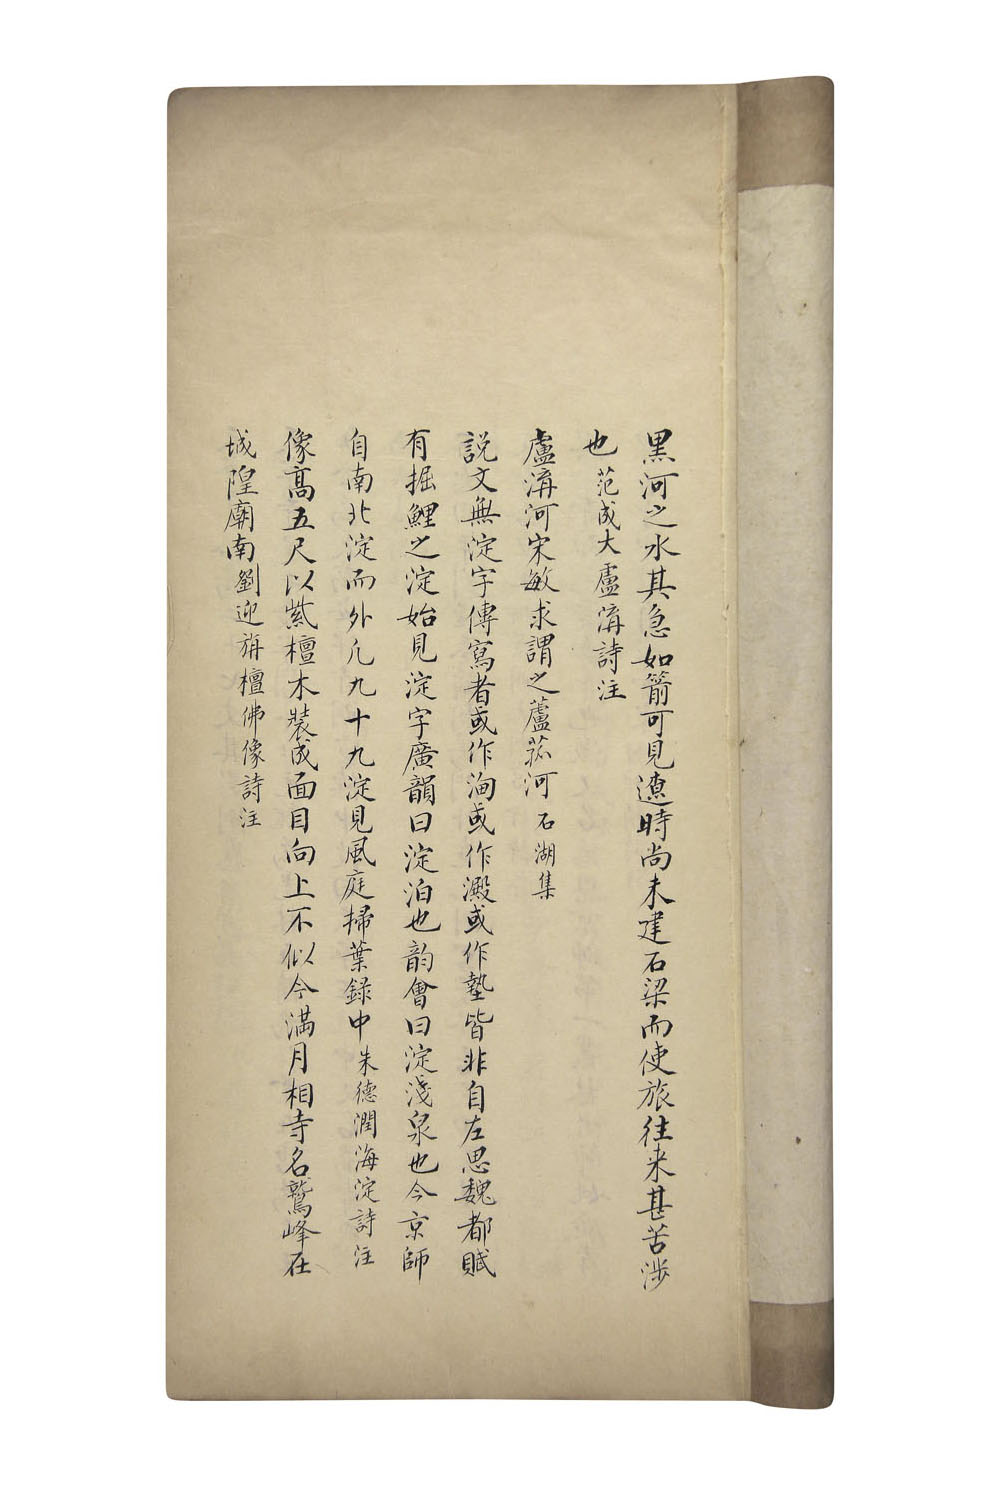 黑河之水其急如箭可見遼時尚未建石梁而使旅往来甚苦涉
也范成大盧溝詩注
盧溝河宋敏求謂之蘆菰河石湖集
說文無淀字傳寫者或作洵或作澱或作墊皆非自左思魏都賦
有掘鯉之淀始見淀字廣韻曰淀泊也韵會曰淀淺泉也今京師
自南北淀而外凡九十九淀見風庭掃葉録中朱德潤海淀詩注
像高五尺以紫檀木裝成面目向上不似今滿月相寺名鷲峰在
城隍廟南劉迎旃檀佛像詩注